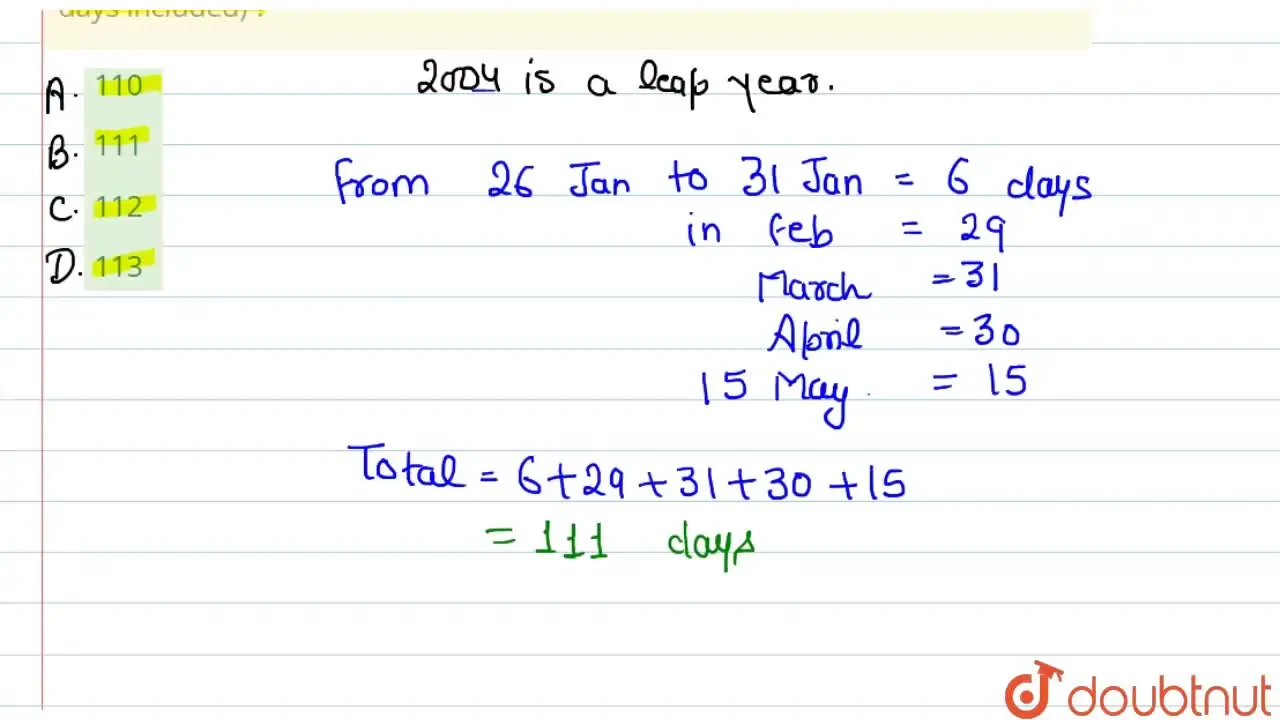 days included) ?
A. 110
B. 111
C. 112
D. 113
2004 is a leap year.
From 26 Jan to 31 Jan = 6 days
in Feb = 29
March = 31
April = 30
15 May = 15
Total = 6+29+31+30+15
= 111 days
doubtnut